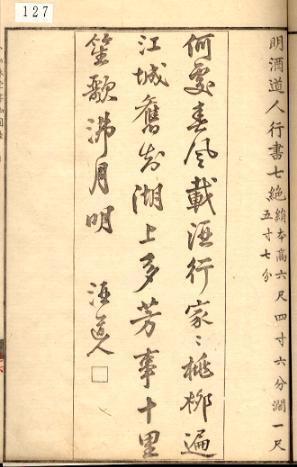 127
明酒道人行書七絶 絹本高六尺四寸六分濶一尺五寸七分
何處春風載酒行家〻桃柳遍
江城舊知湖上多芳事十里
笙歌沸月明 酒道人